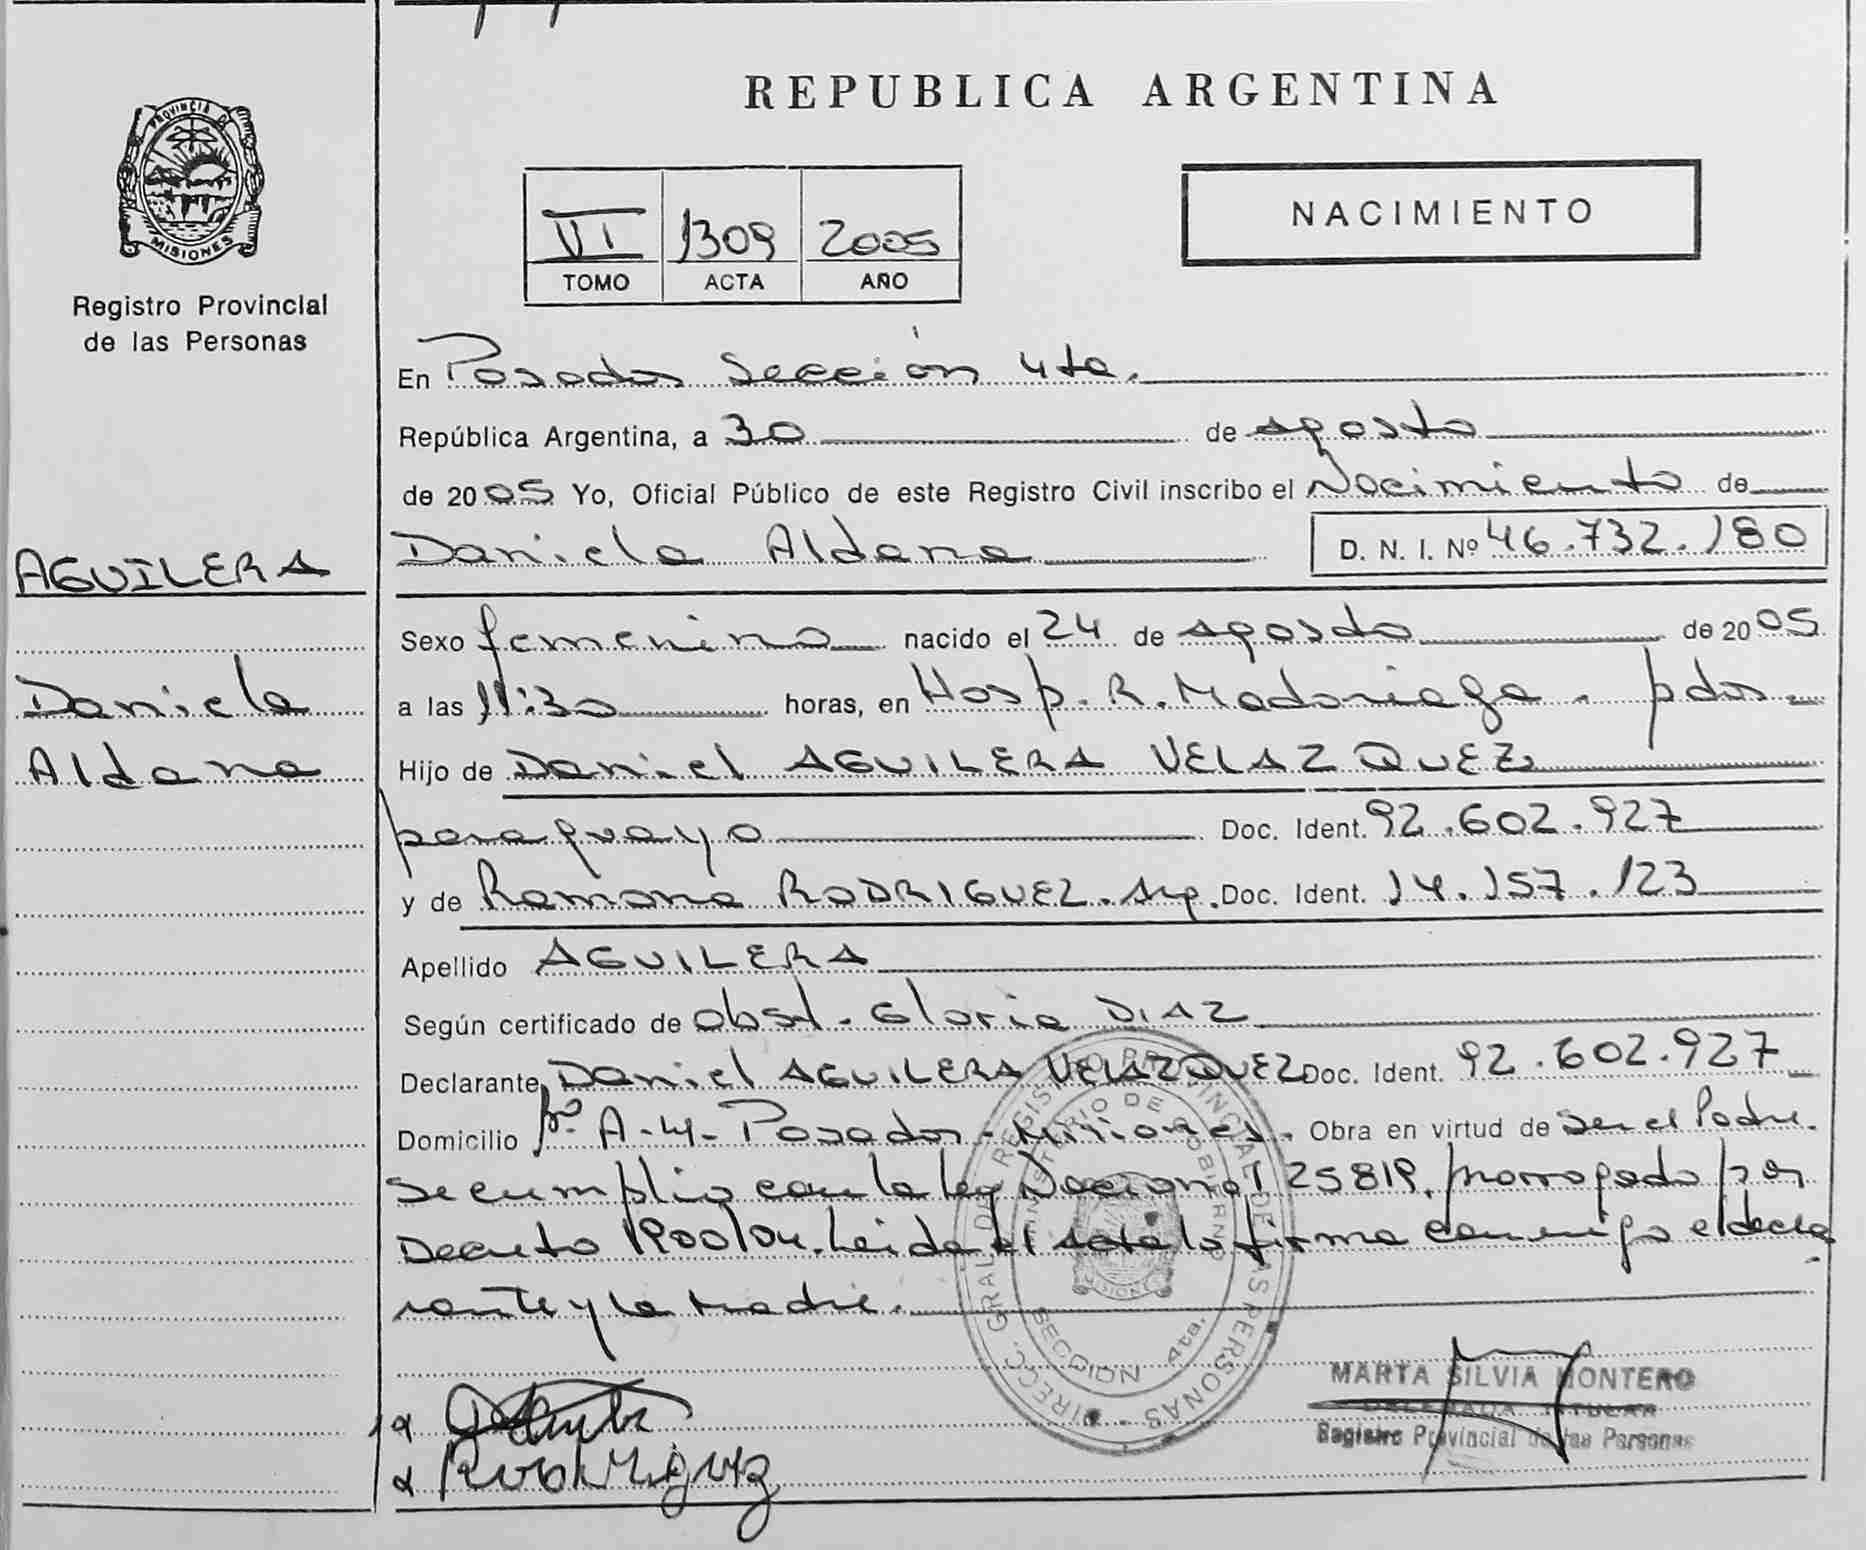 REPUBLICA ARGENTINA
PROVINCIA DE
MISIONES
Registro Provincial
de las Personas
VI 1309 2005
TOMO ACTA AÑO
NACIMIENTO
En Posadas Sección 4ta.
República Argentina, a 30 de agosto
de 2005 Yo, Oficial Público de este Registro Civil inscribo el Nacimiento de
Daniela Aldana D. N. I. Nº 46.732.180
AGUILERA
Daniela
Aldana
Sexo femenino nacido el 24 de agosto de 2005
a las 11:30 horas, en Hosp. R. Madariaga - pdas.
Hijo de Daniel AGUILERA VELAZQUEZ
paraguayo Doc. Ident. 92.602.927
y de Ramona RODRIGUEZ. Arg. Doc. Ident. 14.157.123
Apellido AGUILERA
Según certificado de obst. Gloria DIAZ
Declarante Daniel AGUILERA VELAZQUEZ Doc. Ident. 92.602.927
Domicilio Bº A-4- Posadas - Misiones. Obra en virtud de ser el Padre.
Se cumplio con la ley Nacional 25819, prorrogado por
Decreto 1900/04. Leida el acta la firma conmigo el decla
rante y la madre.
DIRECC. GRAL. DE REGISTRO PROVINCIAL DE LAS PERSONAS
MINISTERIO DE GOBIERNO
MISIONES
SECCION 4ta.
MARTA SILVIA MONTERO
DELEGADA TITULAR
Registro Provincial de las Personas
Rodriguez